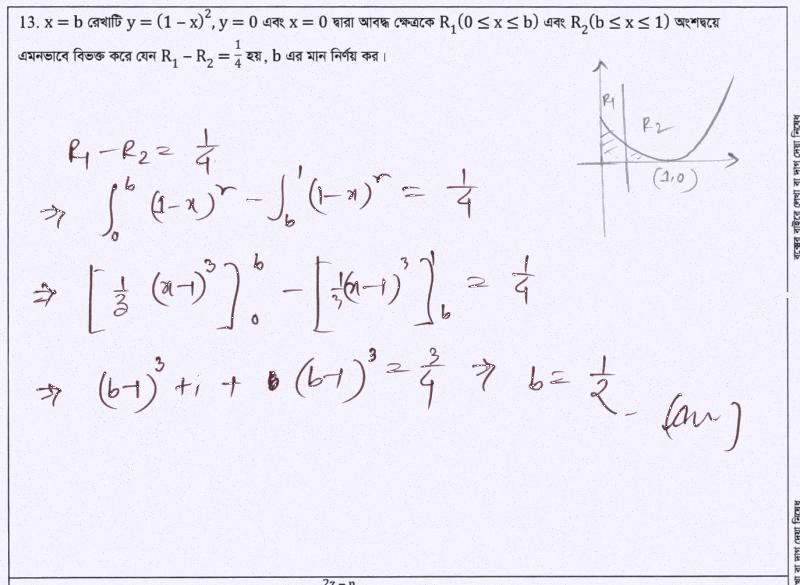 13. x = b রেখাটি y = (1 − x)², y = 0 এবং x = 0 দ্বারা আবদ্ধ ক্ষেত্রকে R₁(0 ≤ x ≤ b) এবং R₂(b ≤ x ≤ 1) অংশদ্বয়ে
এমনভাবে বিভক্ত করে যেন R₁ − R₂ = 1/4 হয়, b এর মান নির্ণয় কর।
R₁
R₂
(1,0)
R₁ − R₂ = 1/4
⇒ ∫₀ᵇ (1−x)² − ∫_b¹ (1−x)² = 1/4
⇒ [1/3 (x−1)³]₀ᵇ − [1/3 (x−1)³]_b¹ = 1/4
⇒ (b−1)³ + 1 + (b−1)³ = 3/4 ⇒ b = 1/2 (Ans)
বক্সের বাইরে লেখা বা দাগ দেয়া নিষেধ
বা দাগ দেয়া নিষেধ